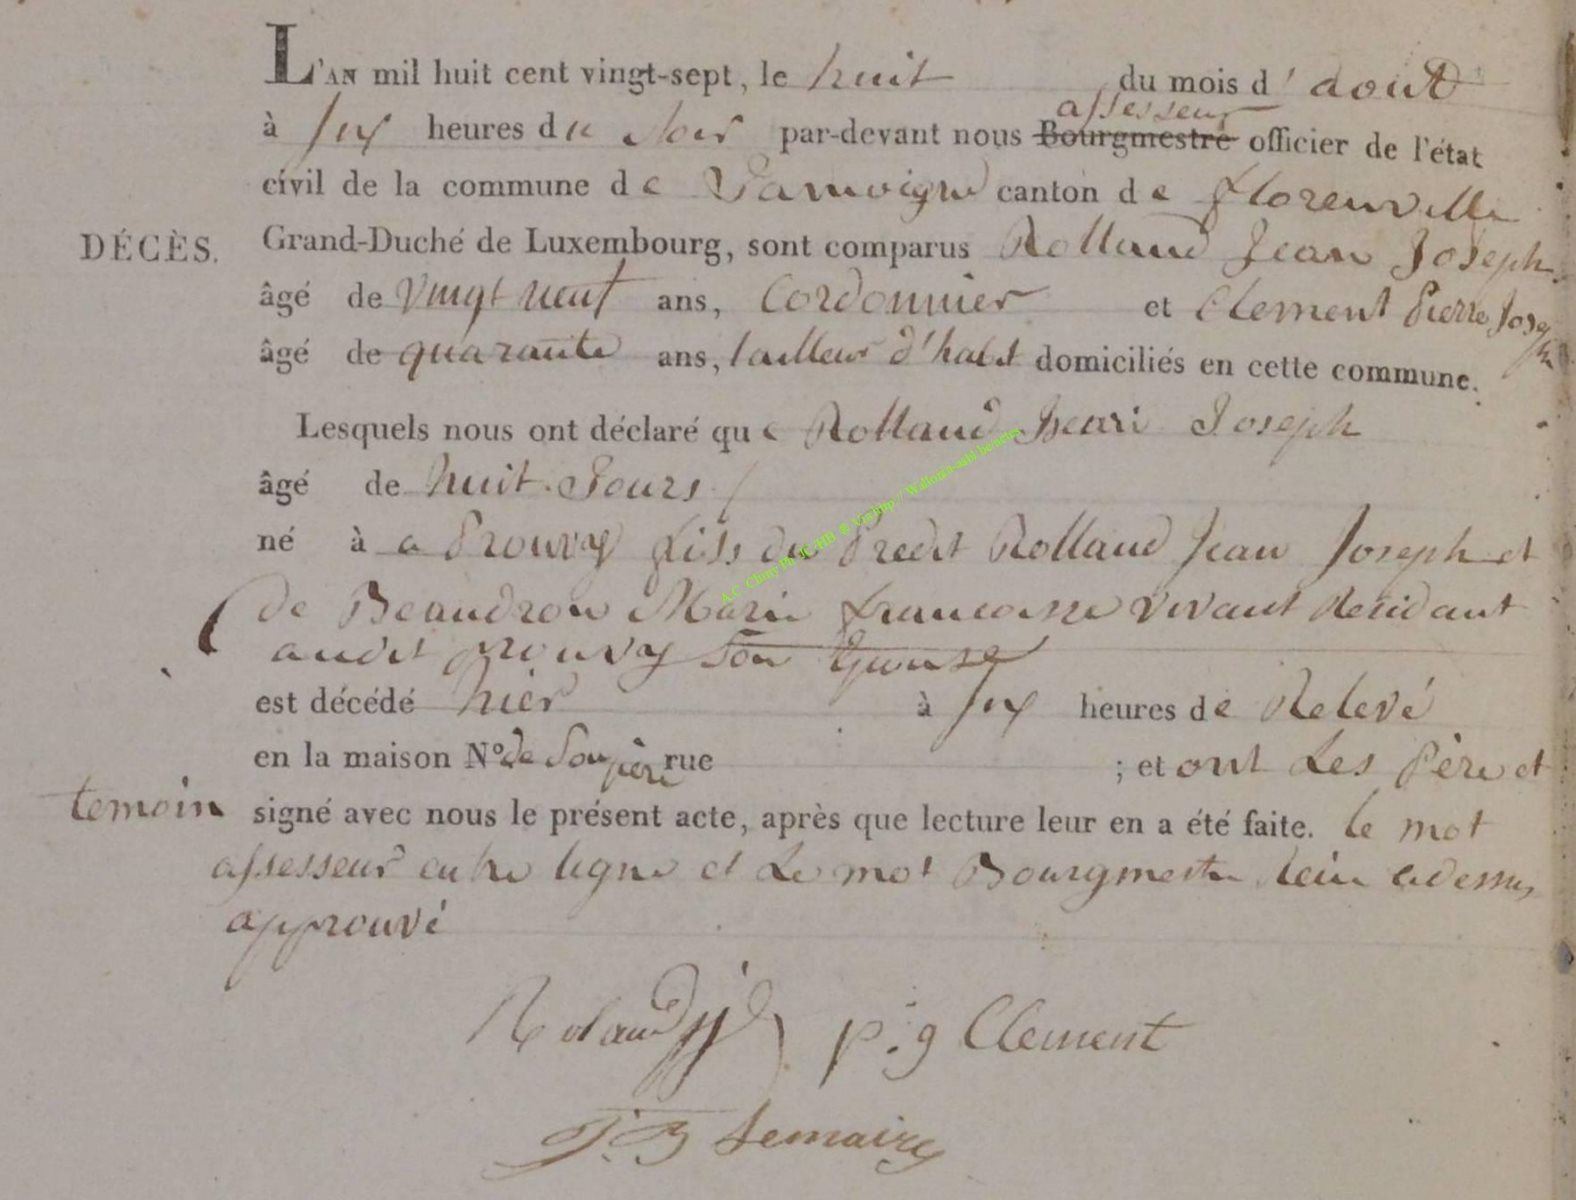 L'AN mil huit cent vingt-sept, le huit du mois d'aout
à six heures du soir par-devant nous Bourgmestre assesseur officier de l'état
civil de la commune de Jamoigne canton de Florenville
DÉCÈS. Grand-Duché de Luxembourg, sont comparus Rolland Jean Joseph
âgé de vingt neuf ans, Cordonnier et Clement Pierre Joseph
âgé de quarante ans, tailleur d'habit domiciliés en cette commune.
Lesquels nous ont déclaré que Rolland Henri Joseph
âgé de huit Jours
né à a Prouvy fils du Predit Rolland Jean Joseph et
de Beaudron Marie francoisse vivant Residant
audit prouvy son Epouse
est décédé hier à six heures de Relevé
en la maison N° de Son père rue ; et ont Les Père et
temoin signé avec nous le présent acte, après que lecture leur en a été faite. le mot
assesseur entre ligne et Le mot Bourgmestre cidessus
approuvé
Roland jj p:g Clement
J.B Lemaire
A.C Chiny Ph JC-HB ® Via http// Wallonia-asbl benelux